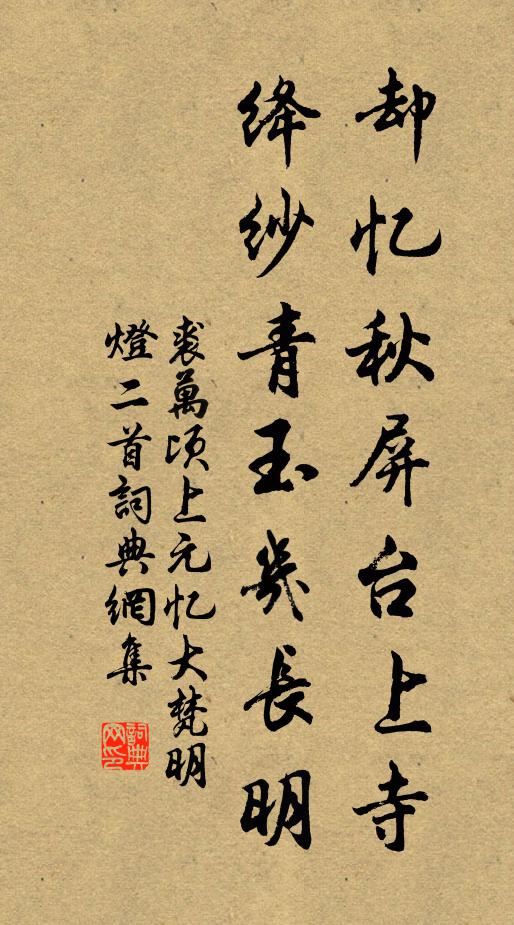 却忆秋屏台上寺
绛纱青玉几長明
裘萬顷上元忆大梵明
燈二首詞典網集
詞典網印